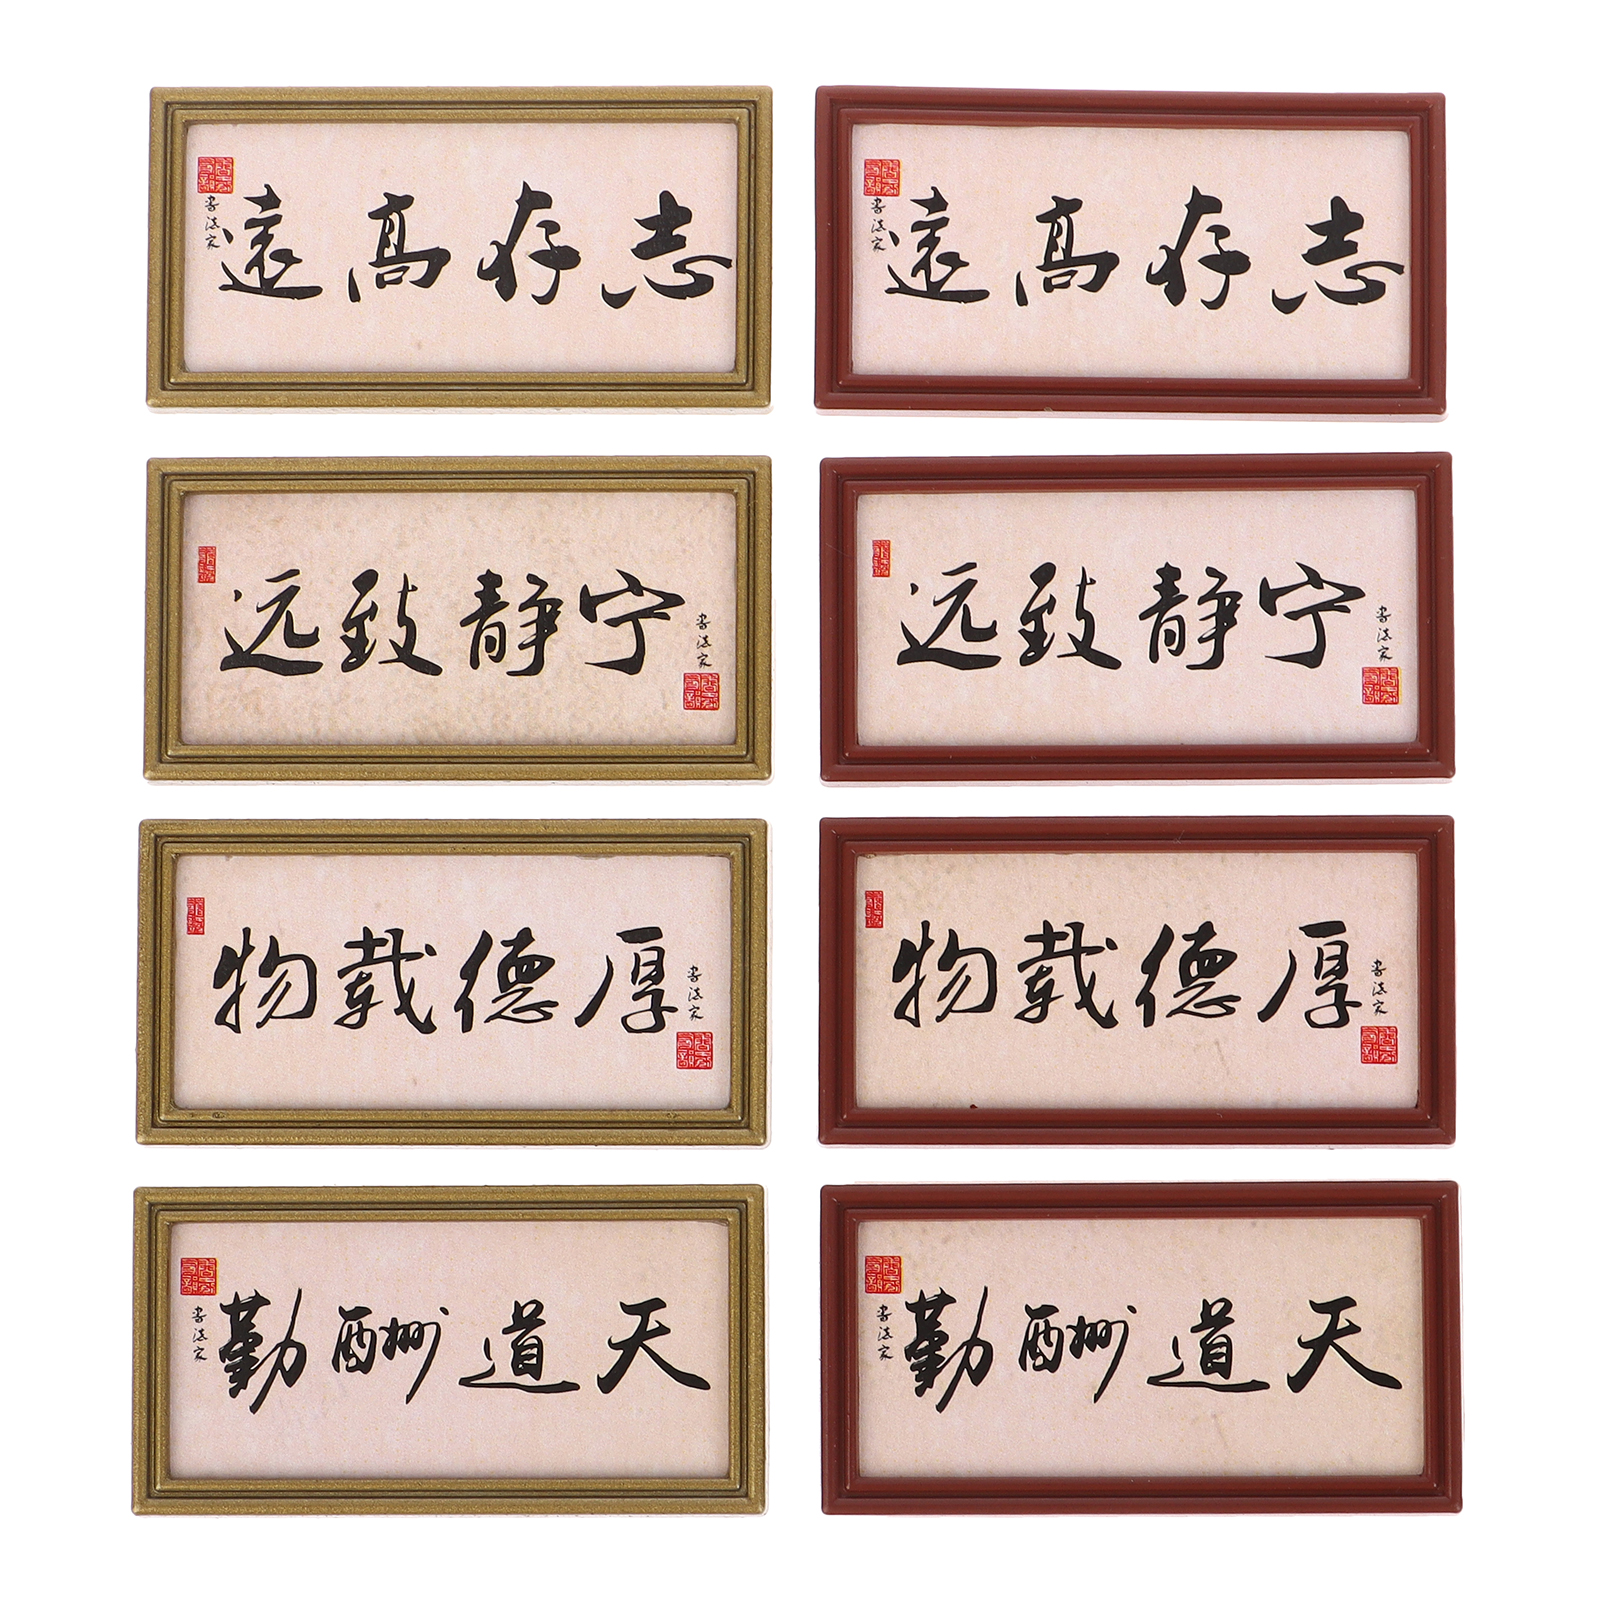 志存高遠
书法家
志存高遠
书法家
书法家
宁静致远
书法家
宁静致远
书法家
厚德载物
书法家
厚德载物
天道酬勤
书法家
天道酬勤
书法家